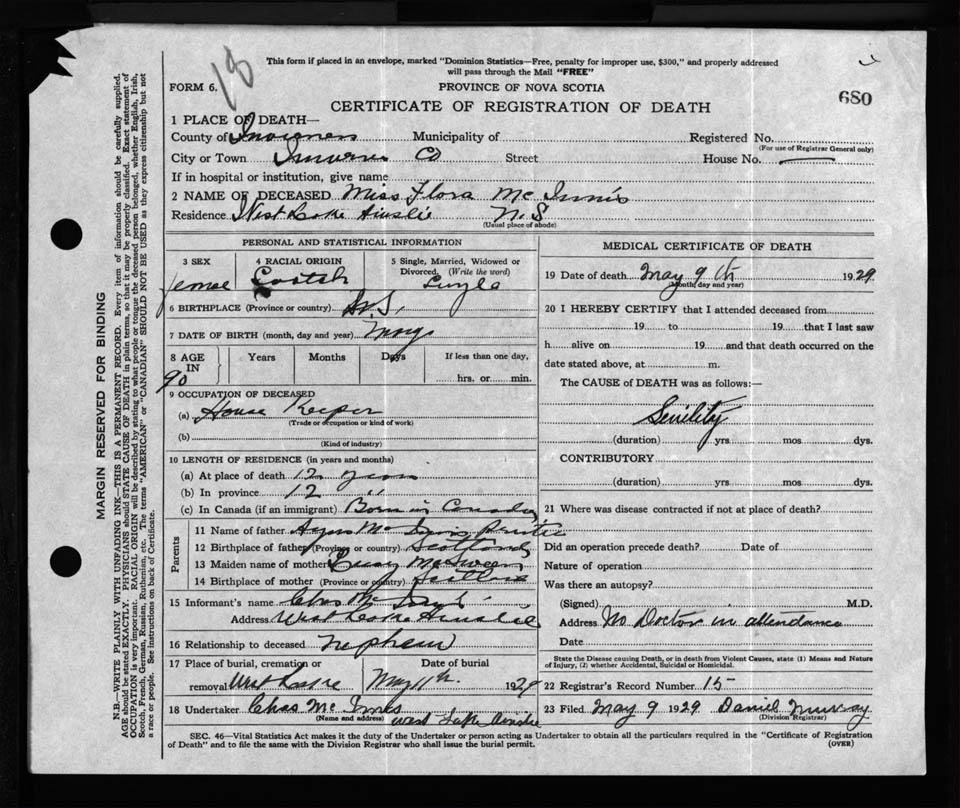 18
This form if placed in an envelope, marked "Dominion Statistics—Free, penalty for improper use, $300," and properly addressed
will pass through the Mail "FREE"
FORM 6.
PROVINCE OF NOVA SCOTIA
680
CERTIFICATE OF REGISTRATION OF DEATH
1 PLACE OF DEATH—
County of Inverness Municipality of Registered No.
(For use of Registrar General only)
City or Town Inverness Co Street House No. —
If in hospital or institution, give name
2 NAME OF DECEASED Miss Flora McInnis
Residence West Lake Ainslie N.S
(Usual place of abode)
PERSONAL AND STATISTICAL INFORMATION
3 SEX 4 RACIAL ORIGIN 5 Single, Married, Widowed or
Divorced. (Write the word)
Female Scotch Single
6 BIRTHPLACE (Province or country) N.S.
7 DATE OF BIRTH (month, day and year)
8 AGE IN Years Months Days If less than one day,
hrs. or min.
90
9 OCCUPATION OF DECEASED
(a) House Keeper
(Trade or occupation or kind of work)
(b)
(Kind of industry)
10 LENGTH OF RESIDENCE (in years and months)
(a) At place of death 12 years
(b) In province 12 "
(c) In Canada (if an immigrant) Born in Canada
Parents
11 Name of father Mc
12 Birthplace of father (Province or country) Scotland
13 Maiden name of mother McSween
14 Birthplace of mother (Province or country) Scotland
15 Informant's name Chas Mc Innis
Address West Lake Ainslie
16 Relationship to deceased nephew
17 Place of burial, cremation or Date of burial
removal West Lake May 11th 1929
18 Undertaker Chas Mc Innis
(Name and address) West Lake Ainslie
MEDICAL CERTIFICATE OF DEATH
19 Date of death May 9th 1929
(Month, day and year)
20 I HEREBY CERTIFY that I attended deceased from
19 to 19 that I last saw
h alive on 19 and that death occurred on the
date stated above, at m.
The CAUSE of DEATH was as follows:—
Senility
(duration) yrs mos dys.
CONTRIBUTORY
(duration) yrs mos dys.
21 Where was disease contracted if not at place of death?
Did an operation precede death? Date of
Nature of operation
Was there an autopsy?
(Signed) M.D.
Address No Doctor in attendance
Date
State the Disease causing Death, or in death from Violent Causes, state (1) Means and Nature
of Injury, (2) whether Accidental, Suicidal or Homicidal.
22 Registrar's Record Number 15
23 Filed May 9 1929 Daniel Murray
(Division Registrar)
SEC. 46—Vital Statistics Act makes it the duty of the Undertaker or person acting as Undertaker to obtain all the particulars required in the "Certificate of Registration
of Death" and to file the same with the Division Registrar who shall issue the burial permit.
(OVER)
MARGIN RESERVED FOR BINDING
N.B.—WRITE PLAINLY WITH UNFADING INK—THIS IS A PERMANENT RECORD. Every item of information should be carefully supplied.
AGE should be stated EXACTLY. PHYSICIANS should STATE CAUSE OF DEATH in plain terms, so that it may be properly classified. Exact statement of
OCCUPATION is very important. RACIAL ORIGIN will be described by stating to what people or tongue the deceased person belonged, whether English, Irish,
Scotch, French, German, Russian, Ruthenian, etc. The terms "AMERICAN" or "CANADIAN" SHOULD NOT BE USED as they express citizenship but not
a race or people. See instructions on back of Certificate.